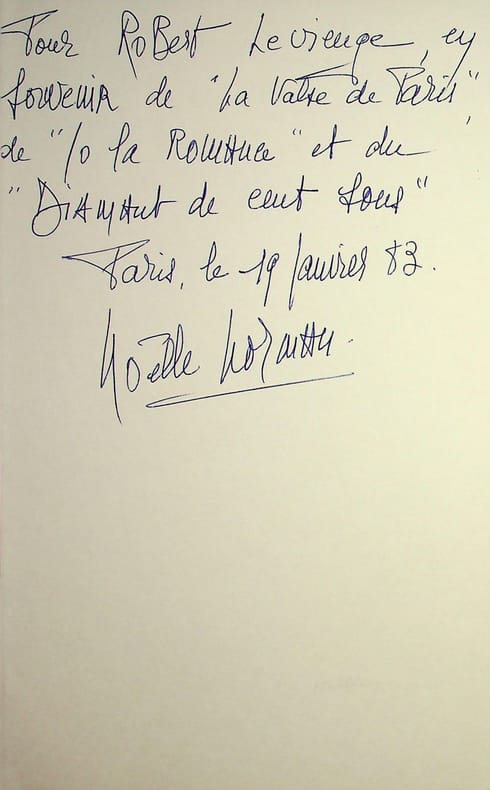 Pour RoBert, en
souvenir de "La Valse de Paris",
de "Jo la Romance" et du
"Diamant de cent sous"
Paris, le 19 Janvier 83.
Noëlle Norman.